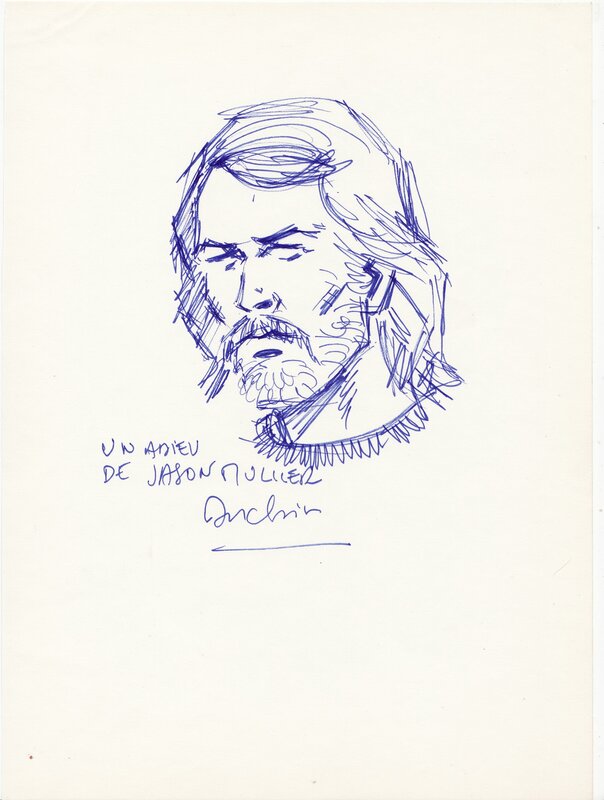 UN ADIEU
DE JASON MULLER
Auclair